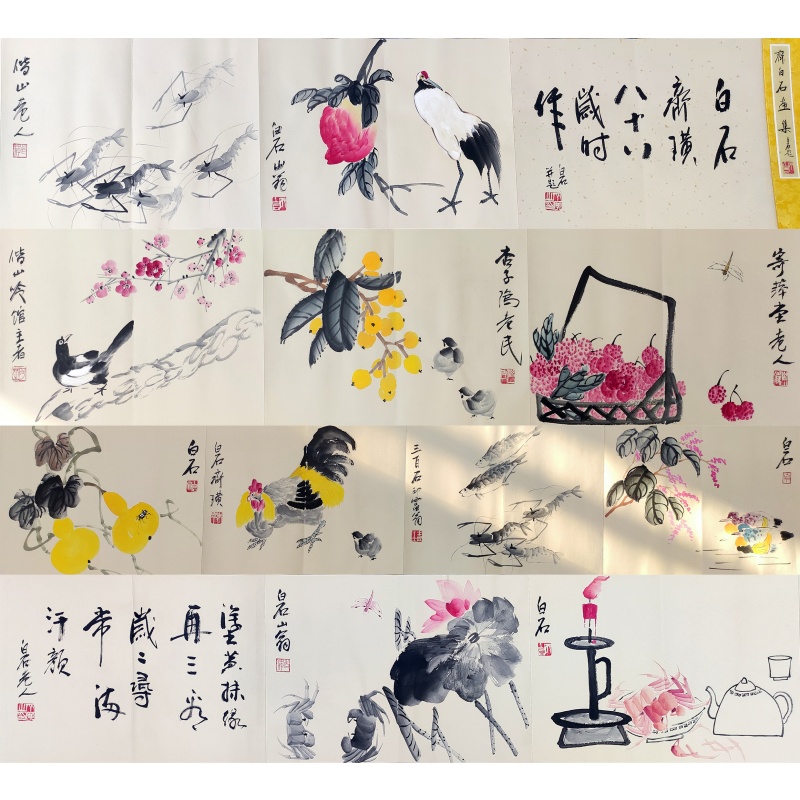 借山老人
白石山翁
白石
齊璜
八十八
歲時
作
白石
并題
齊白石畫集
借山吟館主者
杏子隖老民
寄萍堂老人
白石
白石齊璜
三百石印富翁
白石
再三看
歲〻尋
常
汗顏
白石老人
白石山翁
白石